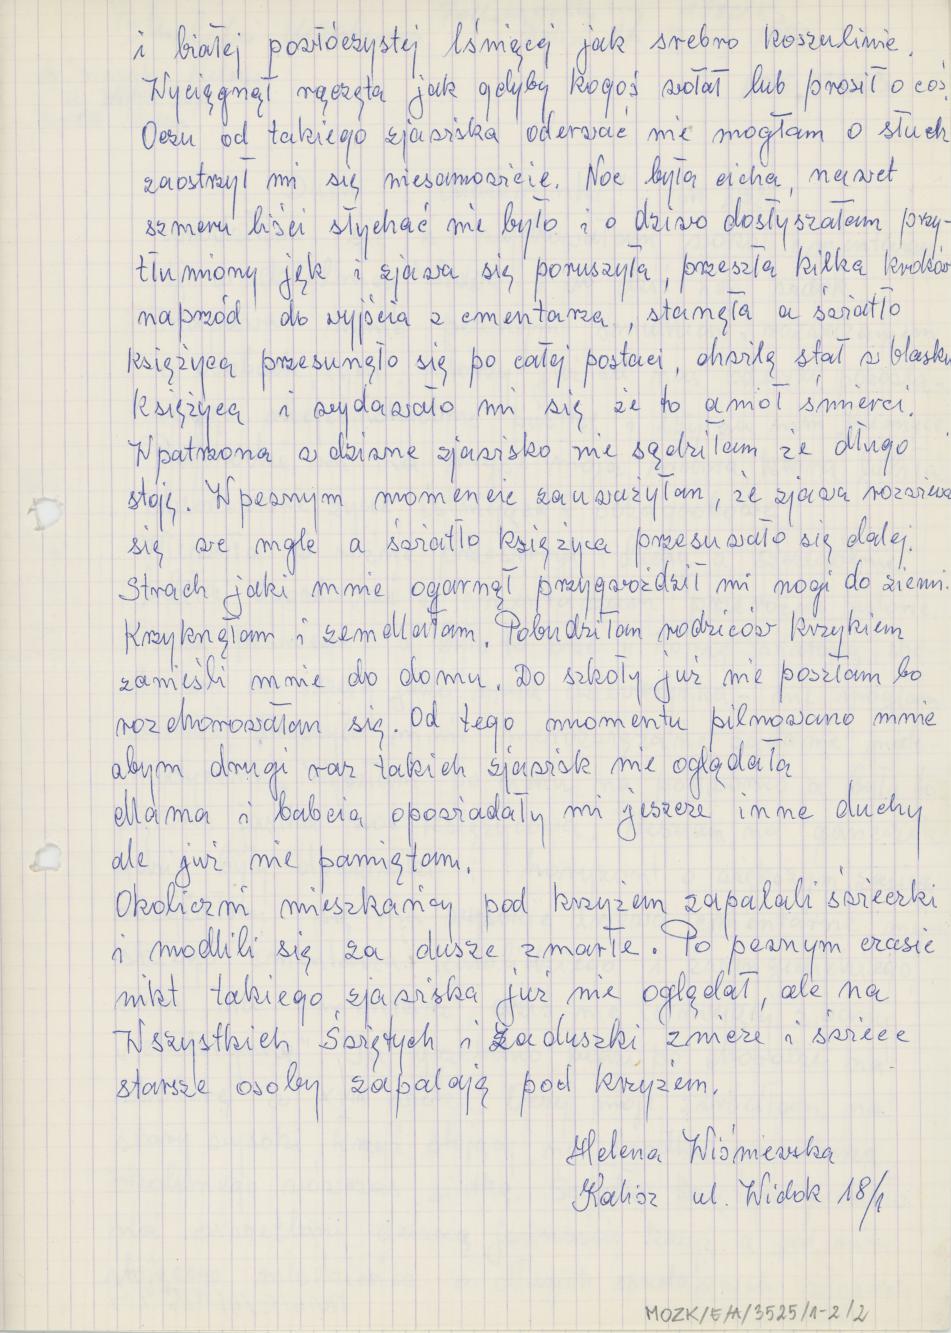 i białej powłóczystej lśniącej jak srebro koszulinie.
Wyciągnął rączęta jak gdyby kogoś wołał lub prosił o coś.
Oczu od takiego zjawiska oderwać nie mogłam o słuch
zaostrzył mi się niesamowicie. Noc była cicha, nawet
szmeru liści słychać nie było i o dziwo dosłyszałam przy-
tłumiony jęk i zjawa się poruszyła, przeszła kilka kroków
naprzód do wyjścia z cmentarza, stanęła a światło
księżyca przesunęło się po całej postaci, chwilę stał w blasku
księżyca i wydawało mi się że to anioł śmierci.
Wpatrzona w dziwne zjawisko nie sądziłam że długo
stoję. W pewnym momencie zauważyłam, że zjawa rozwiewa
się we mgle a światło księżyca przesuwało się dalej.
Strach jaki mnie ogarnął przygwoździł mi nogi do ziemi.
Krzyknęłam i zemdlałam. Pobudziłam rodziców krzykiem
zanieśli mnie do domu. Do szkoły już nie poszłam bo
rozchorowałam się. Od tego momentu pilnowano mnie
abym drugi raz takich zjawisk nie oglądała
Mama i babcia opowiadały mi jeszcze inne duchy
ale już nie pamiętam.
Okoliczni mieszkańcy pod krzyżem zapalali świeczki
i modlili się za dusze zmarłe. Po pewnym czasie
nikt takiego zjawiska już nie oglądał, ale na
Wszystkich Świętych i Zaduszki znicze i świece
starsze osoby zapalają pod krzyżem.
Helena Wiśniewska
Kalisz ul. Widok 18/1
MOZK/E/A/3525/1-2/2